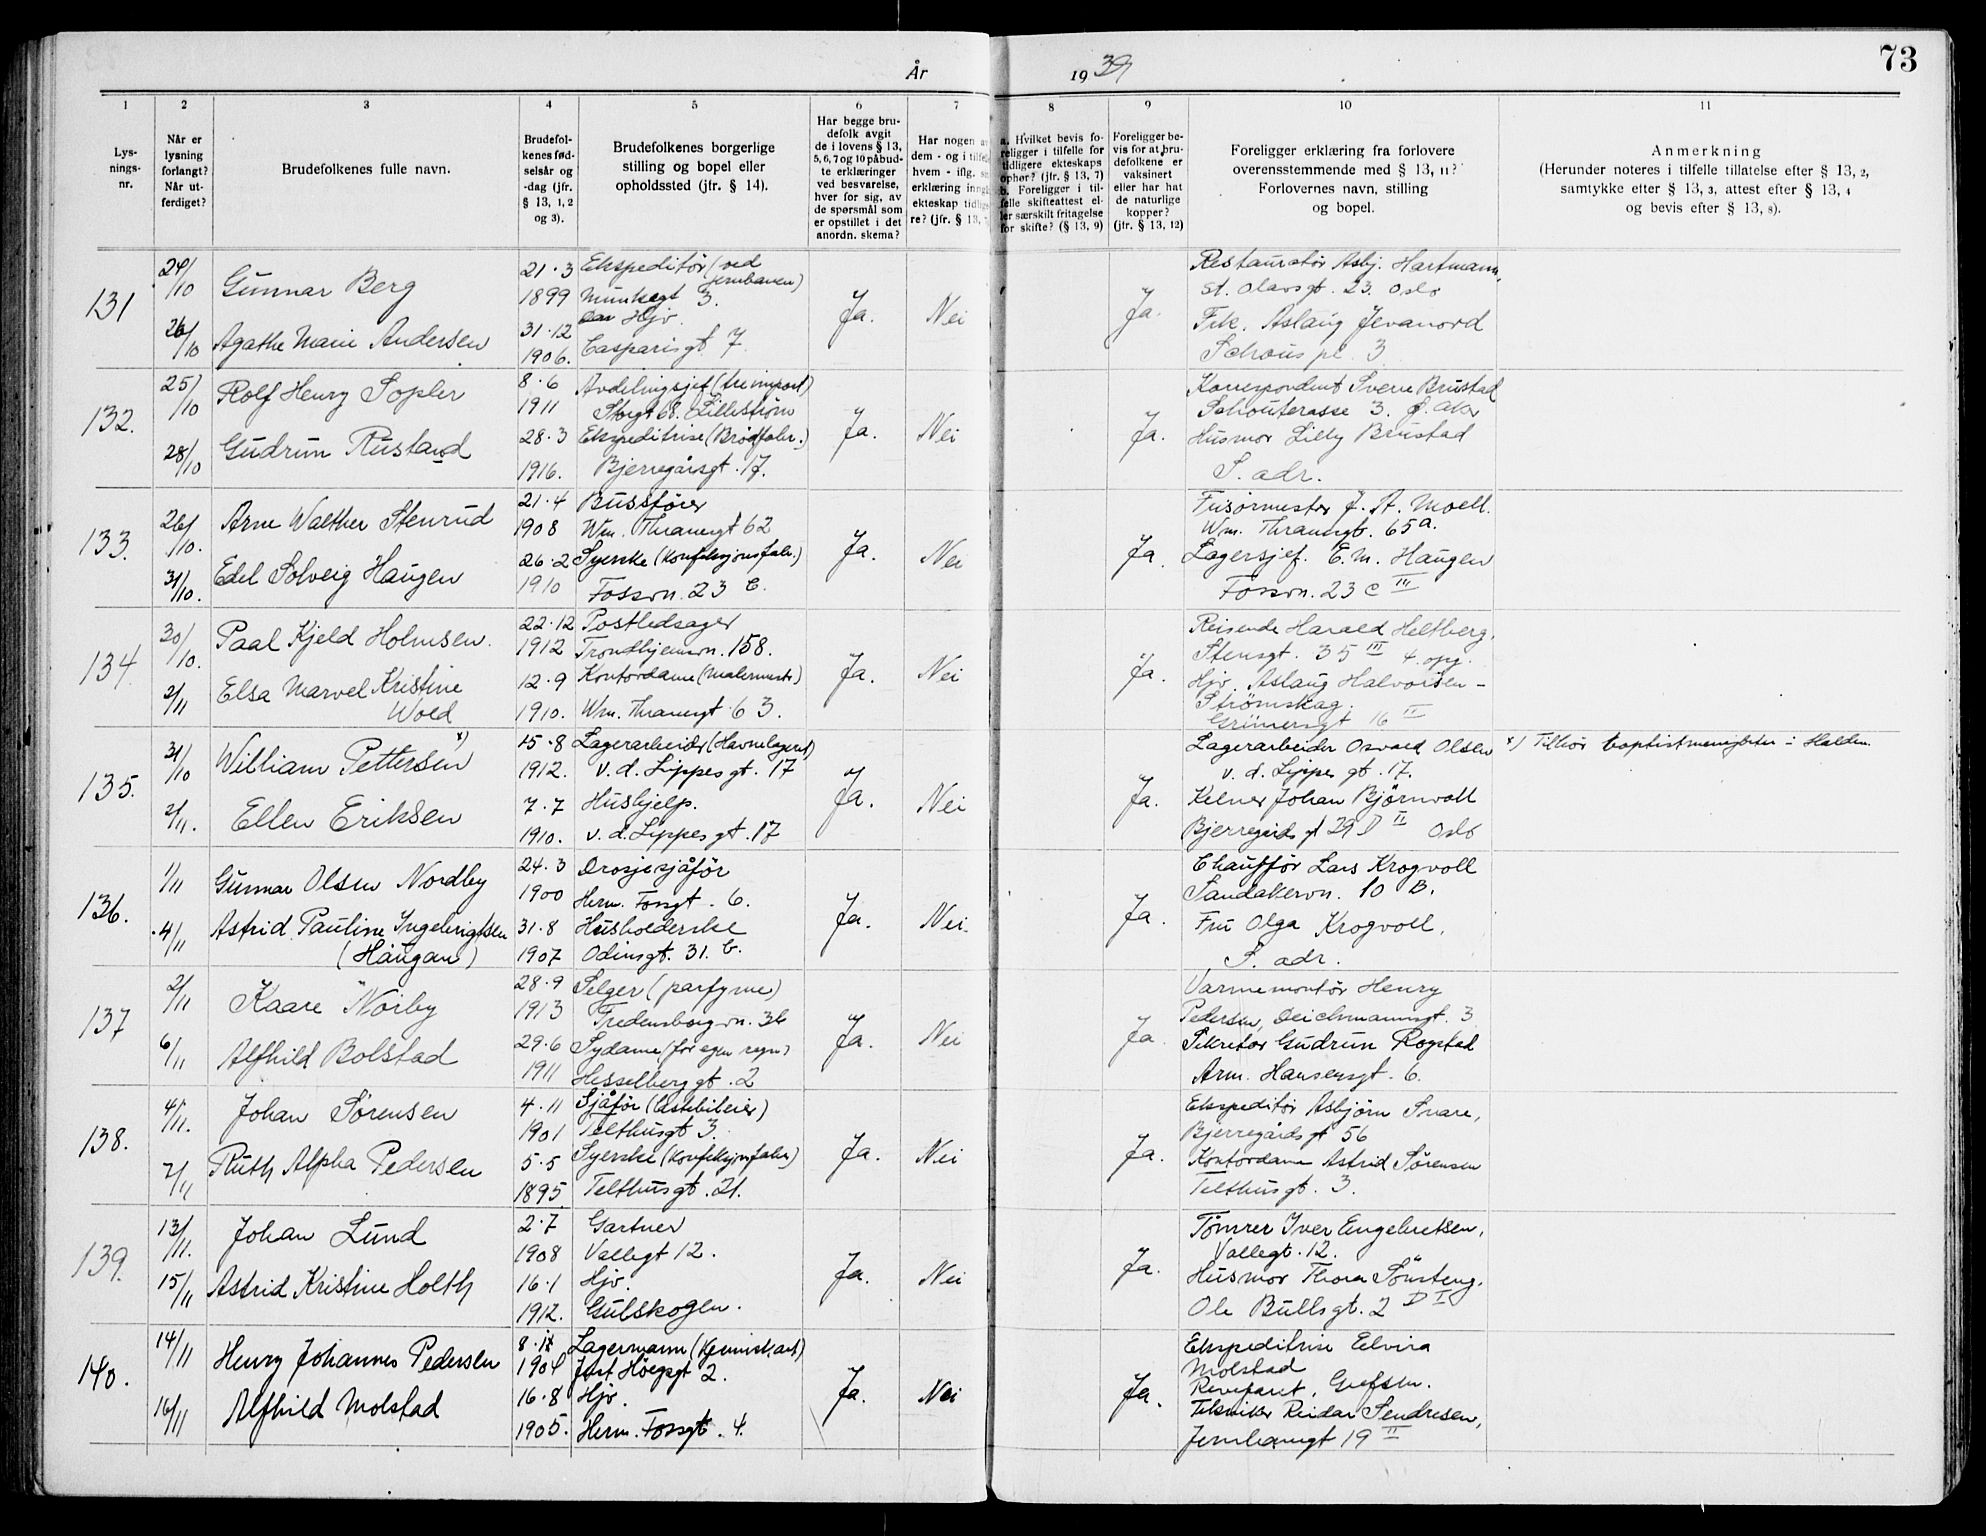 År 1939
73
1 2 3 4 5 6 7 8 9 10 11
Lys-
nings-
nr.
Når er
lysning
forlangt?
Når ut-
ferdiget?
Brudefolkenes fulle navn.
Brudefol-
kenes fød-
selsår og
-dag (jfr.
§ 13, 1, 2
og 3).
Brudefolkenes borgerlige
stilling og bopel eller
opholdssted (jfr. § 14).
Har begge bru-
defolk avgit
de i lovens § 13,
5, 6, 7 og 10 påbud-
te erklæringer
ved besvarelse,
hver for sig, av
de spørsmål som
er opstillet i det
anordn. skema?
Har nogen av
dem - og i tilfelle
hvem - iflg.
erklæring inngå
ekteskap tidlig
re? (jfr. § 13,
a. Hvilket bevis fo-
religger i tilfelle for
tidligere ekteskaps
ophør? (jfr. § 13, 7)
b. Foreligger i til-
felle skifteattest el-
ler særskilt fritagelse
for skifte? (§ 13, 9)
Foreligger be-
vis for at bru-
defolkene er
vaksinert
eller har hat
de naturlige
kopper?
(jfr. § 13, 12)
Foreligger erklæring fra forlovere
overensstemmende med § 13, 11?
Forlovernes navn, stilling
og bopel.
Anmerkning
(Herunder noteres i tilfelle tillatelse efter § 13, 2,
samtykke efter § 13, 3, attest efter § 13, 4
og bevis efter § 13, 8).
131
24/10
26/10
Gunnar Berg
Agathe Marie Andersen
21.3
1899
31.12
1906.
Ekspeditør (ved
jernbanen)
Munkegt 3.
Hjv.
Casparisgt 7.
Ja.
Nei
Ja.
Restauratør Asbj. Hartmann,
St. Olavsgt. 23. Oslo
Frk. Aslaug Jevanord
Schous pl. 3
132.
25/10
28/10
Rolf Henry Sopler
Gudrun Rustand
8.6
1911
28.3
1916.
Avdelingsjef (treimport)
Storgt 68. Lillestrøm
Ekspeditrise (Brødfabr.)
Bjerregårsgt. 17.
Ja.
Nei
Ja.
Korrespondent Sverre Brustad
Schouterasse 3. Ø. Aker
Husmor Lilly Brustad
S. adr.
133.
26/10.
31/10.
Arne Walther Stenrud
Edel Solveig Haugen
21.4
1908
26.2
1910
Bussfører
Wm. Thranegt 62
Syerske (Konfeksjonsfabr.)
Fossvn. 23 C.
Ja.
Nei
Ja.
Frisørmester J. A. Moell.
Wm. Thranegt. 65a.
Lagersjef. E. M. Haugen
Fossvn. 23 c III
134
30/10.
2/11
Paal Kjeld Holmsen.
Elsa Marvel Kristine
Wold
22.12
1912
12.9
1910.
Postledsager
Trondhjemsvn. 158.
Kontordame (Malermestr.)
Wm. Thranegt 63.
Ja.
Nei
Ja.
Reisende Harald Heltberg,
Stensgt. 35 III 4. opg.
Hjv. Aslaug Halvorsen -
Strömskag.
Grünersgt 16 II
135.
31/10
2/11.
William Pettersen x)
Ellen Eriksen
15.8
1912.
7.7
1910.
Lagerarbeider (Havnelageret)
v. d. Lippes gt. 17
Hushjelp.
v. d. Lippes gt. 17
Ja.
Nei
Ja.
Lagerarbeider Osvald Olsen
v. d. Lippes gt. 17.
Kelner Johan Bjørnvoll
Bjerregårds gt 29 D II Oslo
x) Tilhør baptistmenigheten i Halden.
136.
1/11
4/11
Gunnar Olsen Nordby
Astrid Pauline Ingebrigtsen
(Haugan)
24.3
1900
31.8
1907
Drosjesjåfør
Herm. Fossgt. 6.
Husholderske
Odinsgt. 31. b.
Ja.
Nei.
Ja.
Chauffør Lars Krogvoll
Sandakervn. 10 B.
Fru Olga Krogvoll,
S. adr.
137
2/11
6/11
Kaare Nörby
Alfhild Bolstad
28.9
1913
29.6
1911
Selger (parfyme)
Fredensborgvn. 36
Sydame (for egen regn)
Hesselberggt. 2
Ja.
Nei
Ja.
Varmemontør Henry
Pedersen, Deichmannsgt. 3
Sekretær Gudrun Rogstad
Arm. Hansensgt. 6.
138.
4/11.
7/11
Johan Sørensen
Ruth Alpha Pedersen
4.11
1901
5.5
1895
Sjåfør
Telthusgt 3.
Syerske (Konfeksjonfabr.)
Telthusgt. 21.
Ja.
Nei
Ja.
Ekspeditør Asbjørn Snare,
Bjerregårdsgt 56
Kontordame Astrid Sørensen
Telthusgt. 3.
139.
13/11.
15/11
Johan Lund
Astrid Kristine Holth
2.7
1908
16.1
1912.
Gartner
Vallegt 12.
Hjv.
Gulskogen.
Ja.
Nei
Ja.
Tømrer Iver Engebretsen,
Vallegt. 12.
Husmor Thora Sönsteng.
Ole Bullsgt. 2 D I
140.
14/11
16/11
Henry Johannes Pedersen
Alfhild Molstad
1904
16.8
1905.
Lagermann
Just Høegsgt 2.
Hjv.
Herm. Fossgt. 4.
Ja.
Nei
Ja.
Ekspeditrise Elvira
Molstad
Grefsen.
Tekniker Reidar Sendresen,
Jernbanegt 19 II